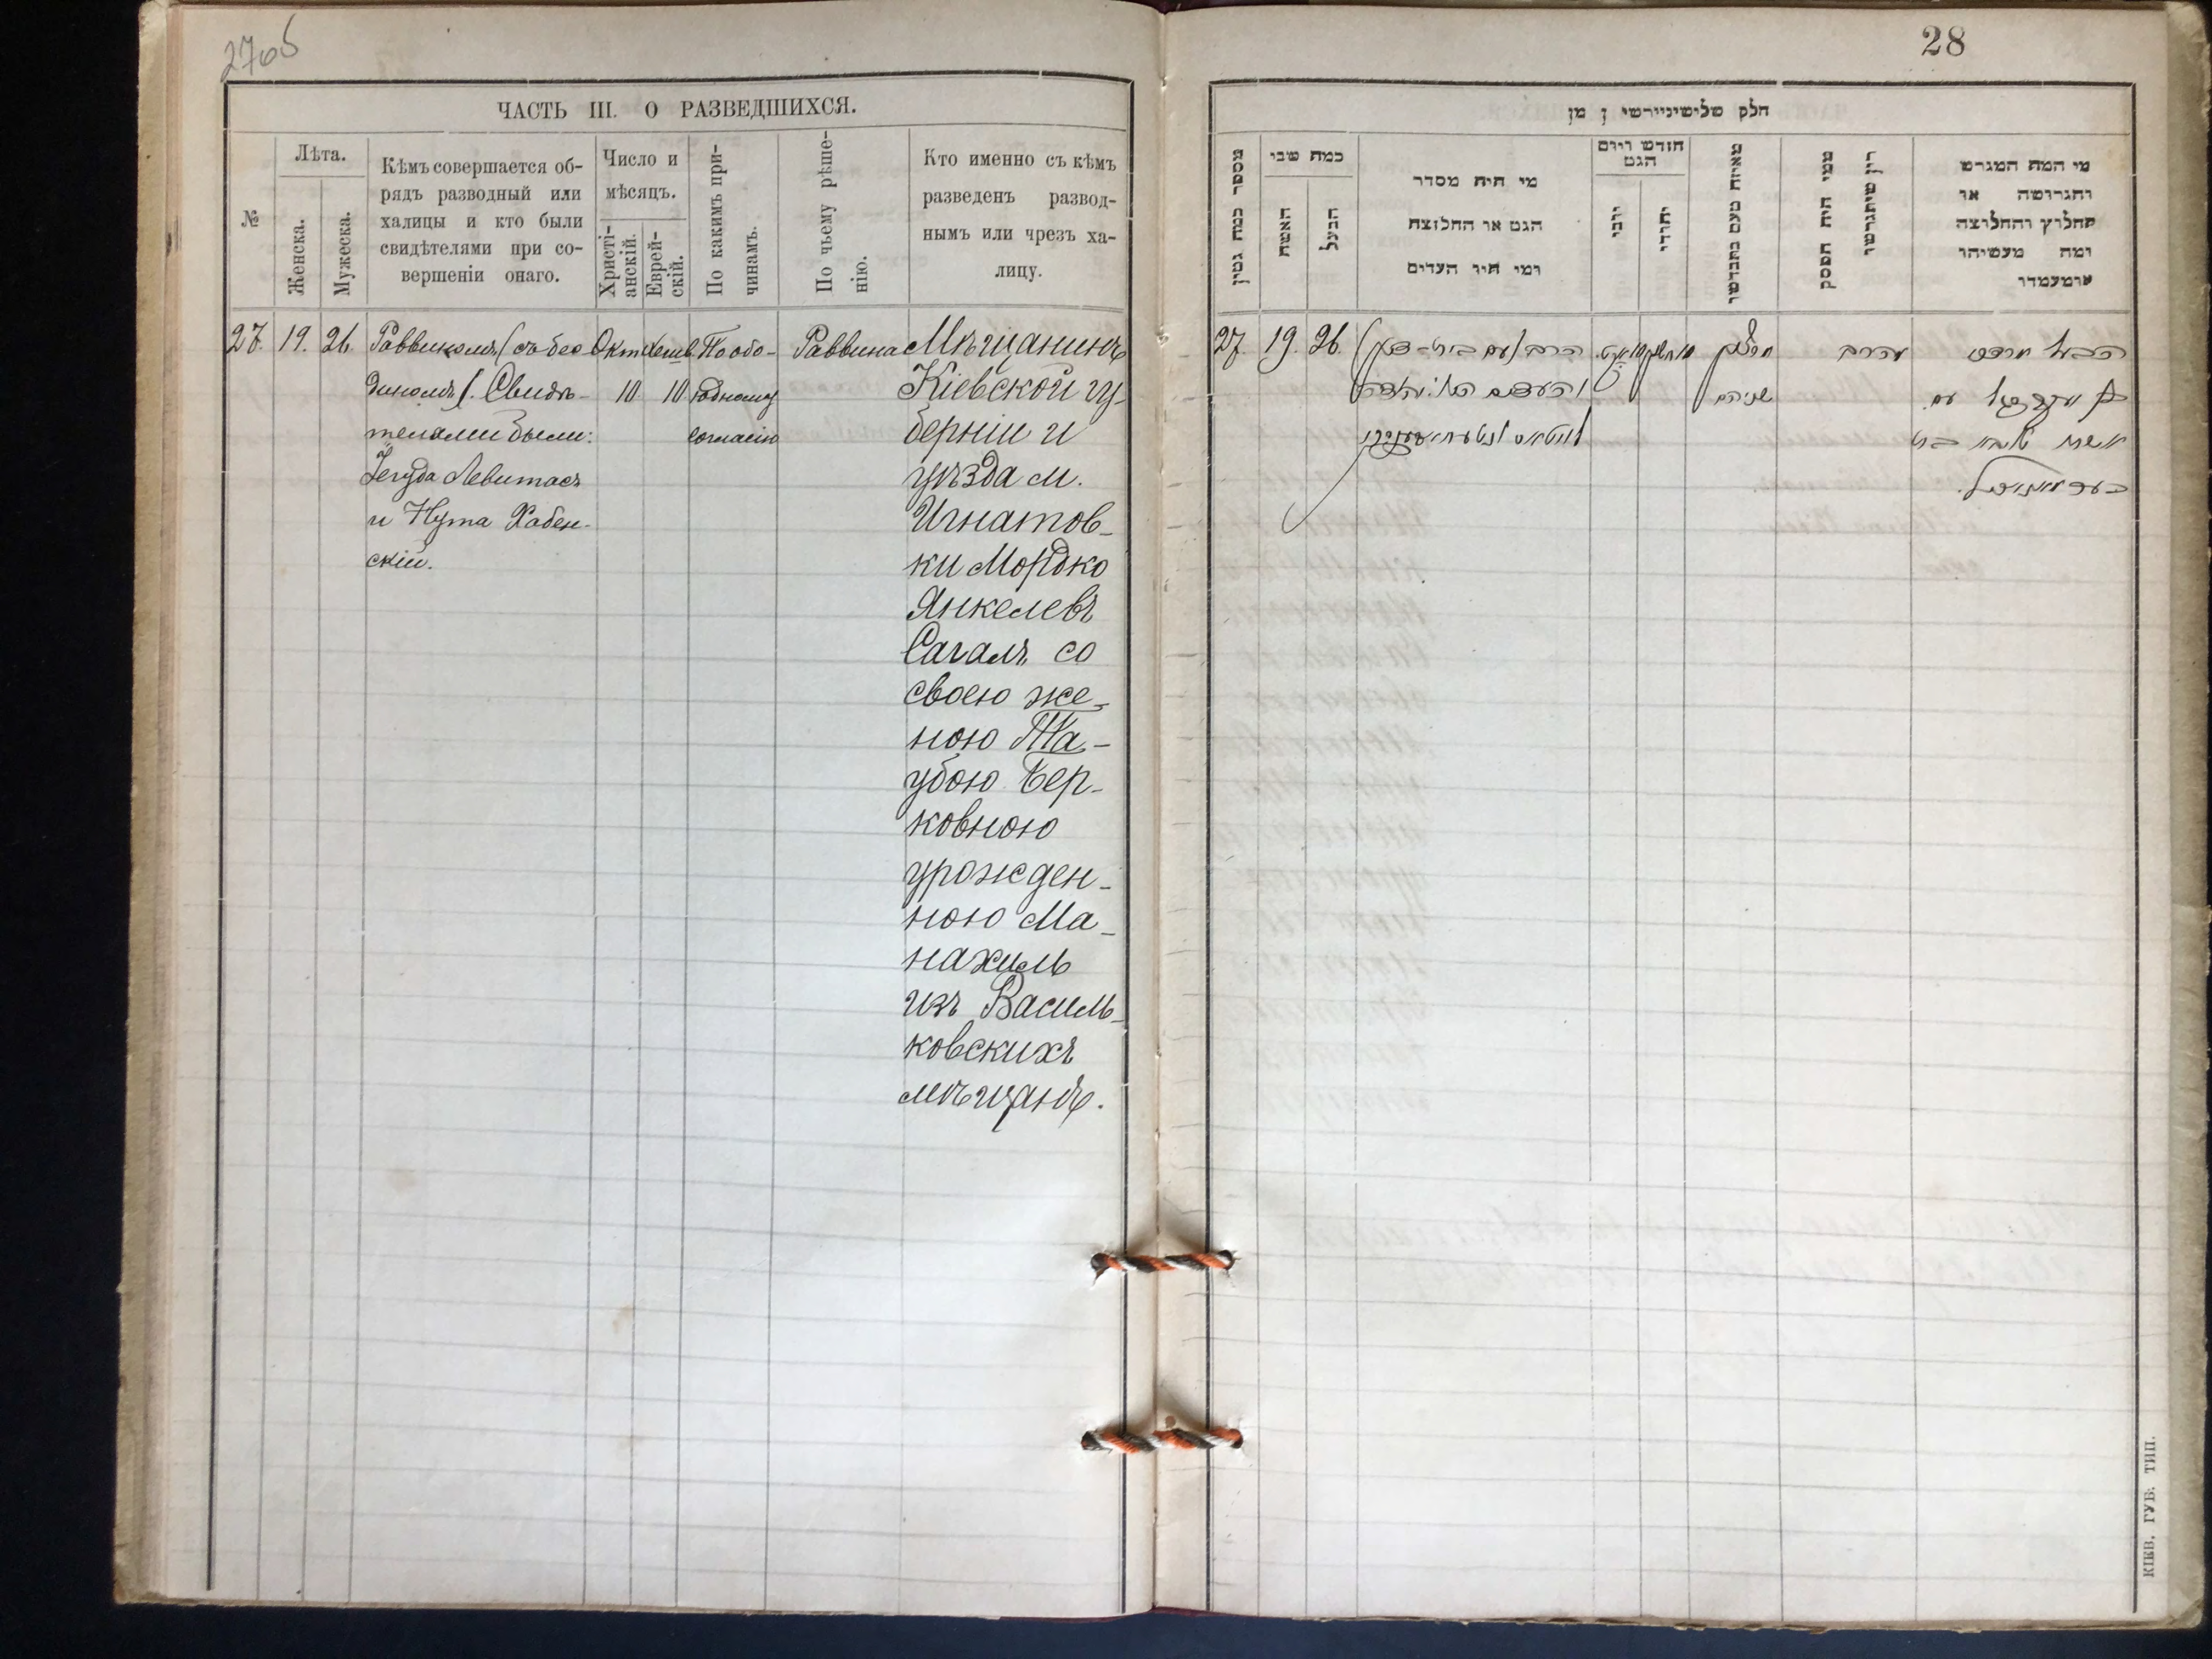 27об
ЧАСТЬ III. О РАЗВЕДШИХСЯ.
№
Лѣта.
Женска.
Мужеска.
Кѣмъ совершается об-
рядъ разводный или
халицы и кто были
свидѣтелями при со-
вершеніи онаго.
Число и
мѣсяцъ.
Христі-
анскій.
Еврей-
скій.
По какимъ при-
чинамъ.
По чьему рѣше-
нію.
Кто именно съ кѣмъ
разведенъ развод-
нымъ или чрезъ ха-
лицу.
27. 19. 26.
Раввиномъ (съ бес
диномъ). Свидѣ-
телями были:
Іегуда Левитасъ
и Нута Хабен-
скій.
Окт.
10
Хешв.
10
По обо-
юдному
согласію
Раввина
Мѣщанинъ
Кіевской гу-
берніи и
уѣзда м.
Игнатов-
ки Мордко
Янкелевъ
Сагалъ со
своею же-
ною Та-
убою Бер-
ковною
урожден-
ною Ма-
нахиль
изъ Василь-
ковскихъ
мѣщанъ.
28
חלק שלישי
מספר כמה גטין
כמה שני
האשה
הבעל
מי היה מסדר
הגט או החלוצה
ומי היו העדים
חודש ויום
הגט
יוני
יהודי
מאיזה טעם נתגרשו
ממי היה הפסק
דין שיתגרשו
מי המה המגרש
והגרושה או
החלוץ והחלוצה
ומה מעשיהו
ומעמדו
27. 19. 26.
הרב (עם בית-דין)
והעדים היו: יהודה
לוויטאס
10
10
שניהם
הרב
הבעל מרדכי
בן
אשתו טויבא בת
КІЕВ. ГУБ. ТИП.